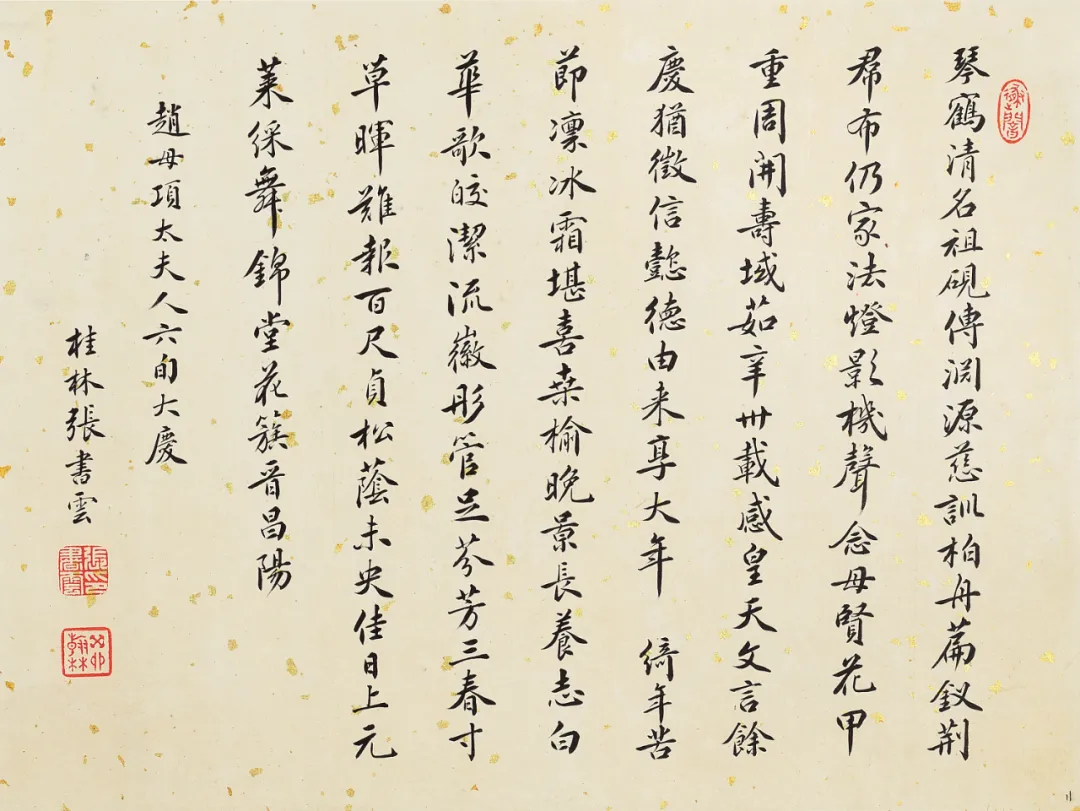 琴鶴清名祖硯傳淵源慈訓柏舟篇釵荆
帬布仍家法燈影機聲念母賢花甲
重周開壽域茹辛卅載感皇天文言餘
慶猶徵信懿德由来享大年 綺年苦
節凛冰霜堪喜桑榆晚景長養志白
華歌皎潔流徽彤管足芬芳三春寸
草暉難報百尺貞松蔭未央佳日上元
萊綵舞錦堂花簇晋昌陽
趙母項太夫人六旬大慶
桂林張書雲
張書雲印
癸卯翰林